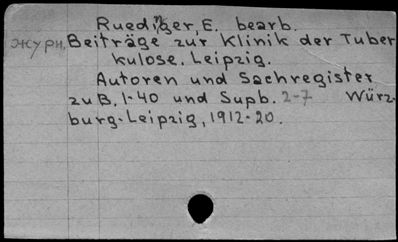 Ruediger, E. bearb.
журн. Beiträge zur Klinik der Tuber
kulose. Leipzig.
Autoren und Sachregister
zu B. 1-40 und Supb. 2-7 Würz-
burg-Leipzig, 1912-20.